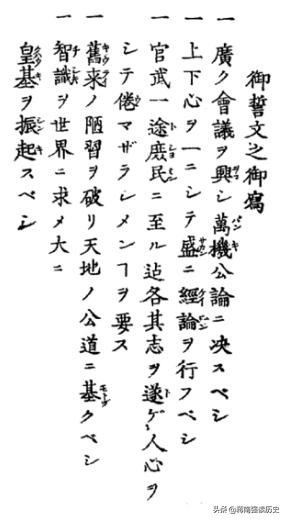 御誓文之御寫
一 廣ク會議ヲ興シ萬機公論ニ决スベシ
一 上下心ヲ一ニシテ盛ニ經論ヲ行フベシ
一 官武一途庶民ニ至ル迠各其志ヲ遂ゲ人心ヲ
シテ倦マザラシメンヿヲ要ス
一 舊来ノ陋習ヲ破リ天地ノ公道ニ基クベシ
一 智識ヲ世界ニ求メ大ニ
皇基ヲ振起スベシ
头条 @蒋南强侃历史